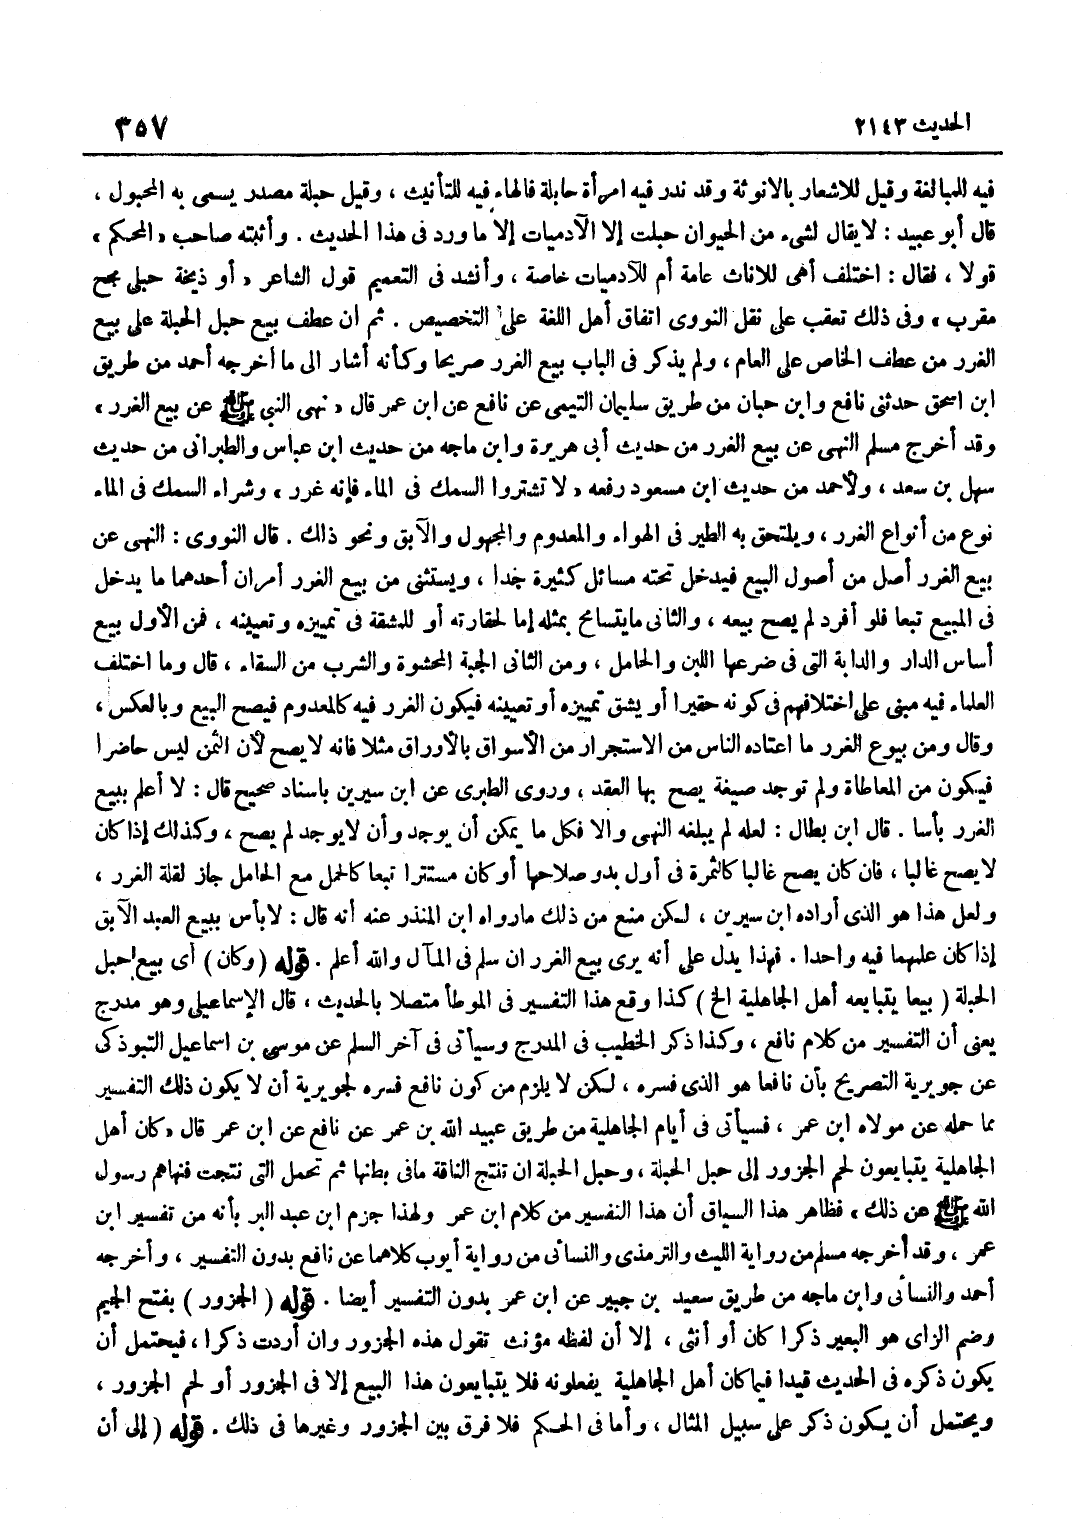 الحديث ٢١٤٣
٣٥٧
فيه للمبالغة وقيل للاشعار بالانوثة وقد ندر فيه امرأة حابلة فالهاء فيه للتأنيث ، وقيل حبلة مصدر يسمى به المحبول ،
قال أبو عبيد : لا يقال لشىء من الحيوان حبلت إلا الآدميات إلا ما ورد فى هذا الحديث . وأثبته صاحب « المحكم »
قولا ، فقال : اختلف أهى للاناث عامة أم للآدميات خاصة ، وأنشد فى التعميم قول الشاعر « أو ذيخة حبلى مجح
مقرب » وفى ذلك تعقب على نقل النووى اتفاق أهل اللغة على التخصيص . ثم ان عطف بيع حبل الحبلة على بيع
الغرر من عطف الخاص على العام ، ولم يذكر فى الباب بيع الغرر صريحا وكأنه أشار الى ما أخرجه أحمد من طريق
ابن اسحق حدثنى نافع وابن حبان من طريق سليمان التيمى عن نافع عن ابن عمر قال « نهى النبي ﷺ عن بيع الغرر »
وقد أخرج مسلم النهى عن بيع الغرر من حديث أبى هريرة وابن ماجه من حديث ابن عباس والطبرانى من حديث
سهل بن سعد ، ولأحمد من حديث ابن مسعود رفعه « لا تشتروا السمك فى الماء فإنه غرر » وشراء السمك فى الماء
نوع من أنواع الغرر ، ويلتحق به الطير فى الهواء والمعدوم والمجهول والآبق ونحو ذلك . قال النووى : النهى عن
بيع الغرر أصل من أصول البيع فيدخل تحته مسائل كثيرة جدا ، ويستثنى من بيع الغرر أمران أحدهما ما يدخل
فى المبيع تبعا فلو أفرد لم يصح بيعه ، والثانى ما يتسامح بمثله إما لحقارته أو للمشقة فى تمييزه وتعيينه ، فمن الأول بيع
أساس الدار والدابة التى فى ضرعها اللبن والحامل ، ومن الثانى الجبة المحشوة والشرب من السقاء ، قال وما اختلف
العلماء فيه مبنى على اختلافهم فى كونه حقيرا أو يشق تمييزه أو تعيينه فيكون الغرر فيه كالمعدوم فيصح البيع وبالعكس ،
وقال ومن بيوع الغرر ما اعتاده الناس من الاستجرار من الأسواق بالأوراق مثلا فانه لا يصح لأن الثمن ليس حاضرا
فيكون من المعاطاة ولم توجد صيغة يصح بها العقد ، وروى الطبرى عن ابن سيرين باسناد صحيح قال : لا أعلم ببيع
الغرر بأسا . قال ابن بطال : لعله لم يبلغه النهى والا فكل ما يمكن أن يوجد وأن لا يوجد لم يصح ، وكذلك إذا كان
لا يصح غالبا ، فان كان يصح غالبا كالثمرة فى أول بدو صلاحها أو كان مستترا تبعا كالحمل مع الحامل جاز لقلة الغرر ،
ولعل هذا هو الذى أراده ابن سيرين ، لكن منع من ذلك ما رواه ابن المنذر عنه أنه قال : لا بأس ببيع العبد الآبق
إذا كان علمهما فيه واحدا . فهذا يدل على أنه يرى بيع الغرر ان سلم فى المآل والله أعلم . قوله ( وكان ) أى بيع حبل
الحبلة ( بيعا يتبايعه أهل الجاهلية الخ ) كذا وقع هذا التفسير فى الموطأ متصلا بالحديث ، قال الإسماعيلى وهو مدرج
يعنى أن التفسير من كلام نافع ، وكذا ذكر الخطيب فى المدرج وسيأتى فى آخر السلم عن موسى بن اسماعيل التبوذكى
عن جويرية التصريح بأن نافعا هو الذى فسره ، لكن لا يلزم من كون نافع فسره لجويرية أن لا يكون ذلك التفسير
مما حمله عن مولاه ابن عمر ، فسيأتى فى أيام الجاهلية من طريق عبيد الله بن عمر عن نافع عن ابن عمر قال « كان أهل
الجاهلية يتبايعون لحم الجزور إلى حبل الحبلة ، وحبل الحبلة ان تنتج الناقة مافى بطنها ثم تحمل التى نتجت فنهاهم رسول
الله ﷺ عن ذلك » فظاهر هذا السياق أن هذا التفسير من كلام ابن عمر ولهذا جزم ابن عبد البر بأنه من تفسير ابن
عمر ، وقد أخرجه مسلم من رواية الليث والترمذى والنسائى من رواية أيوب كلاهما عن نافع بدون التفسير ، وأخرجه
أحمد والنسائى وابن ماجه من طريق سعيد بن جبير عن ابن عمر بدون التفسير أيضا . قوله ( الجزور ) بفتح الجيم
وضم الزاى هو البعير ذكرا كان أو أنثى ، إلا أن لفظه مؤنث تقول هذه الجزور وان أردت ذكرا ، فيحتمل أن
يكون ذكره فى الحديث قيدا فيما كان أهل الجاهلية يفعلونه فلا يتبايعون هذا البيع إلا فى الجزور أو لحم الجزور ،
ويحتمل أن يكون ذكر على سبيل المثال ، وأما فى الحكم فلا فرق بين الجزور وغيرها فى ذلك . قوله ( إلى أن